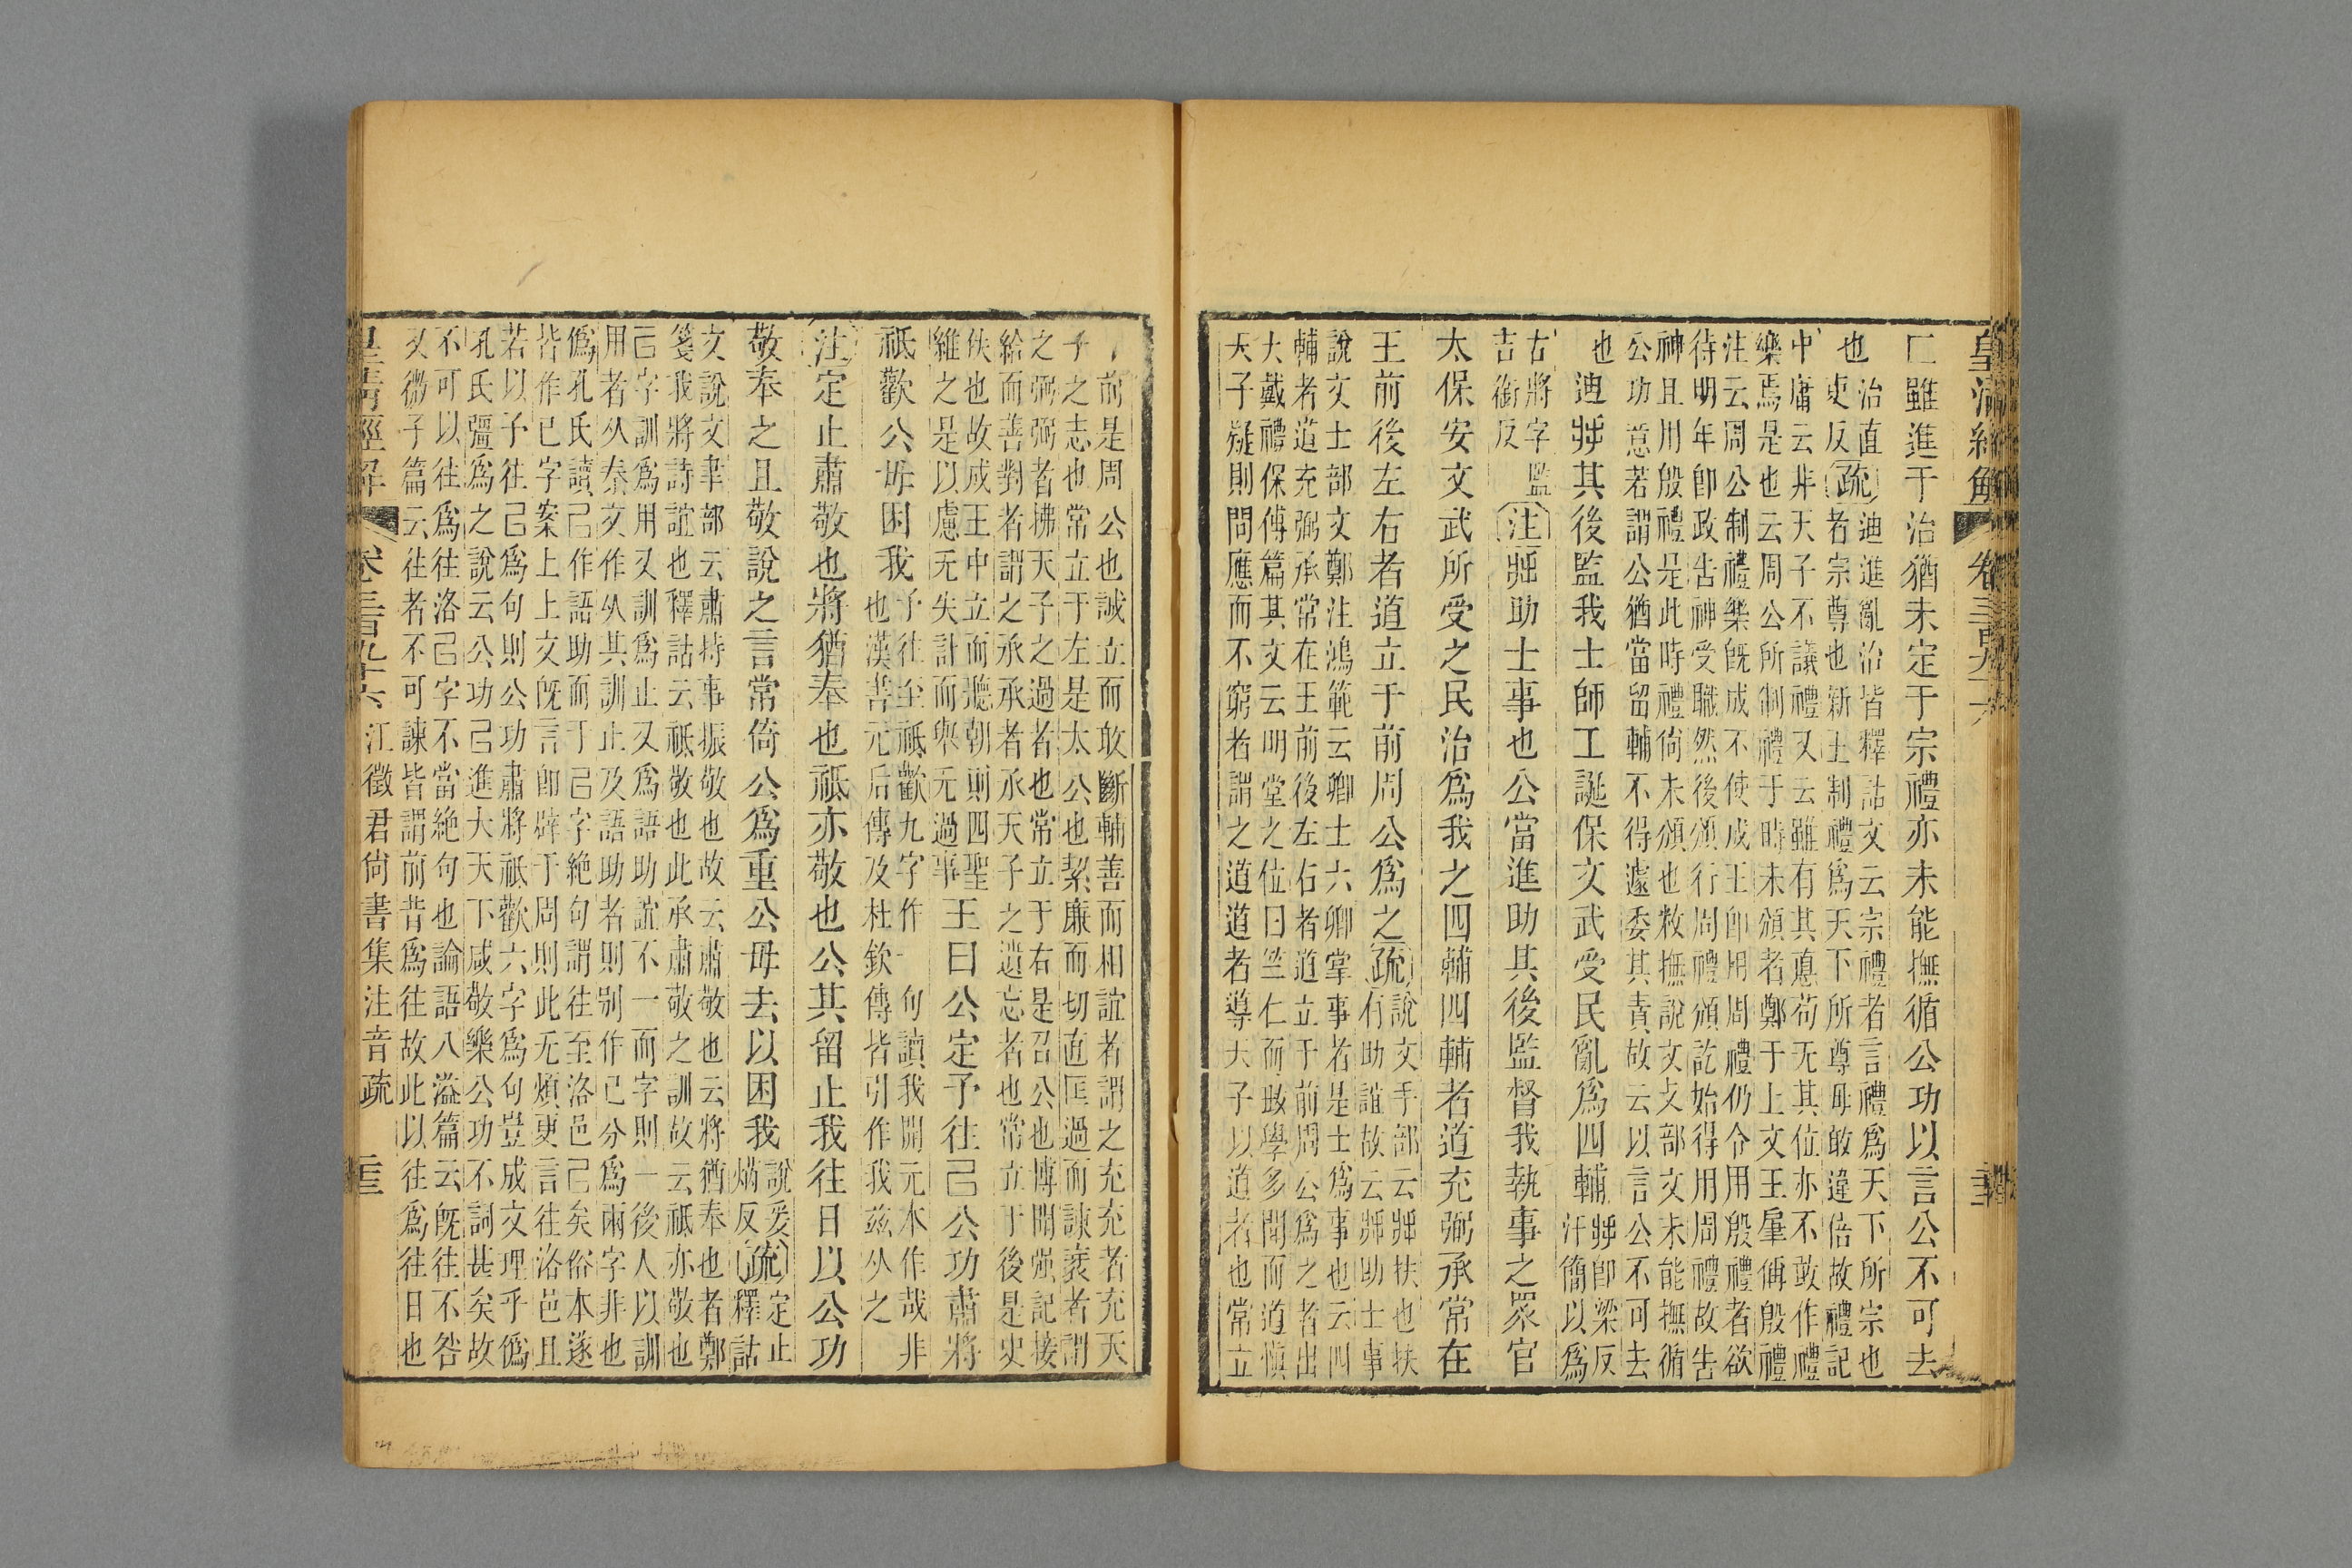 皇清經解
卷三百九十六
雖進于治猶未定于宗禮亦未能撫循公功以言公不可去
也
治直
吏反
疏
迪進亂治皆釋詁文云宗禮者言禮爲天下所宗也
者宗尊也新王制禮爲天下所尊毋敢違倍故禮記
中庸云非天子不議禮又云雖有其悳苟无其位亦不敢作禮
樂焉是也云周公所制禮于時未頒者鄭于上文王肇偁殷禮
注云周公制禮樂旣成不使成王卽用周禮仍令用殷禮者欲
待明年卽政告神受職然後頒行周禮頒訖始得用周禮故告
神且用殷禮是此時禮尙未頒也敉撫說文攴部文未能撫循
公功意若謂公猶當留輔不得遽委其責故云以言公不可去
也
迪將其後監我士師工誕保文武受民亂爲四輔
將卽梁反
汗簡以爲
古將字 監
吉銜反
注
將助士事也公當進助其後監督我執事之眾官
太保安文武所受之民治爲我之四輔四輔者道充弼承常在
王前後左右者道立于前周公爲之
疏
說文手部云將扶也扶
有助誼故云將助士事
說文士部文鄭注鴻範云卿士六卿掌事者是士爲事也云四
輔者道充弼承常在王前後左右者道立于前周公爲之者出
大戴禮保傅篇其文云明堂之位曰篤仁而好學多聞而道愼
天子疑則問應而不窮者謂之道道者導天子以道者也常立
于前是周公也誠立而敢斷輔善而相誼者謂之充充者充天
子之志也常立于左是太公也絜廉而切直匡過而諫衺者謂
之弼弼者拂天子之過者也常立于右是召公也博聞强記接
給而善對者謂之承承者承天子之遺忘者也常立于後是史
佚也故成王中立而聽朝則四聖
維之是以慮无失計而舉无過事
王曰公定予往已公功肅將
祇歡公毋困我
予往至祇歡九字作一句讀我開元本作哉非
也漢書元后傳及杜欽傳皆引作我茲从之
注
定止肅敬也將猶奉也祇亦敬也公其留止我往日以公功
敬奉之且敬說之言常倚公爲重公毋去以困我
說爰
爇反
疏
定止
釋詁
文說文聿部云肅持事振敬也故云肅敬也云將猶奉也者鄭
箋我將詩誼也釋詁云祇敬也此承肅敬之訓故云祇亦敬也
已字訓爲用又訓爲止又爲語助誼不一而字則一後人以訓
用者从秦文作㠯其訓止及語助者則别作已分爲兩字非也
僞孔氏讀已作語助而于已字絕句謂往至洛邑已矣俗本遂
皆作已字案上上文旣言卽辟于周則此无煩更言往洛邑且
若以予往已爲句則公功肅將祇歡六字爲句豈成文理乎僞
孔氏彊爲之說云公功已進大天下咸敬樂公功不詞甚矣故
不可以往爲往洛已字不當絕句也論語八溢篇云旣往不咎
又微子篇云往者不可諫皆謂前昔爲往故此以往爲往日也
皇清經解
卷三百九十六
江徵君尙書集注音疏